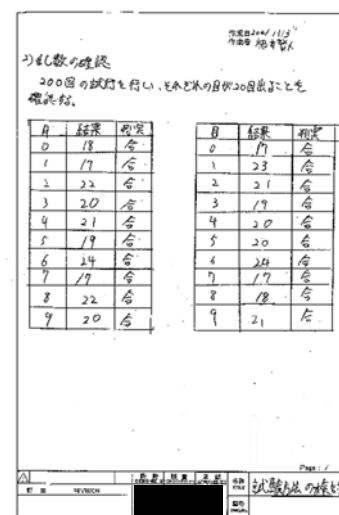 作成日2001/11/3
作成者
2)乱数の確認
200回の試行を行い、それぞれの目が20回出ることを
確認する。
目 結果 判定
0 18 合
1 17 合
2 22 合
3 20 合
4 21 合
5 19 合
6 24 合
7 17 合
8 22 合
9 20 合
目 結果 判定
0 17 合
1 23 合
2 21 合
3 19 合
4 20 合
5 20 合
6 24 合
7 17 合
8 18 合
9 21 合
Page: 1
REVISION
名称 試験方法の検
図番